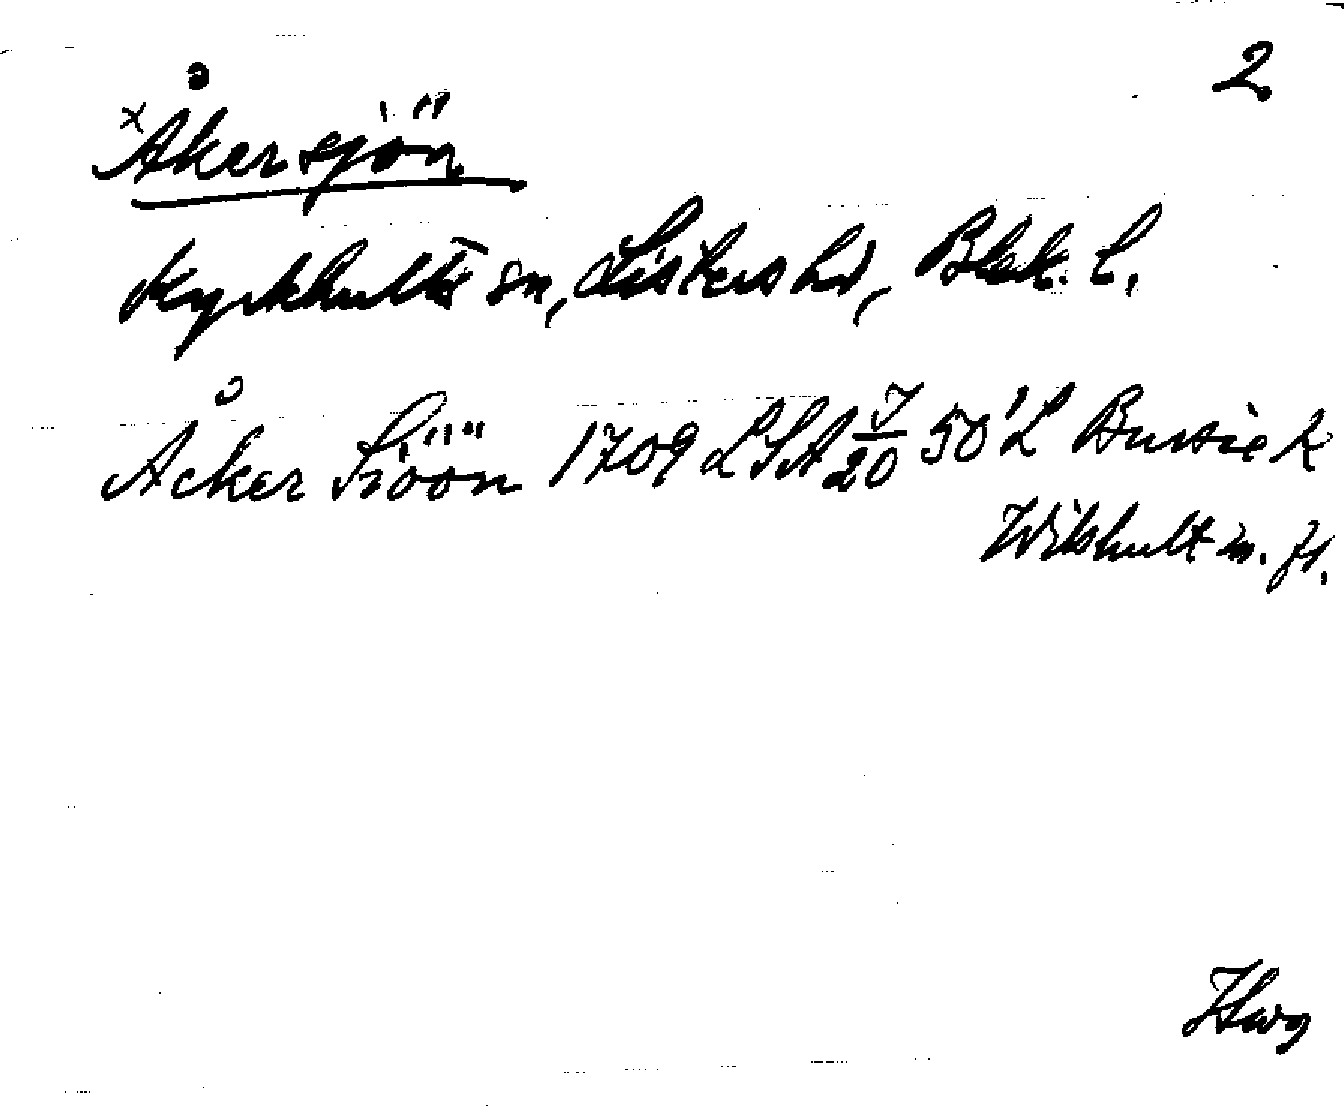 2
x Åkersjön
Kyrkhults sn, Listers hd, Blek. l.
Åcker Siöön 1709 LSA J/20 50'L Bussiek
Wilshult m. fl.